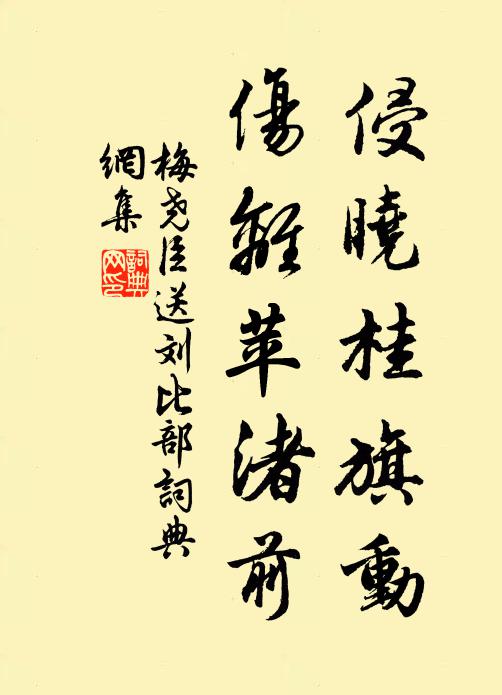 侵曉桂旗動
傷離苹渚前
梅尧臣送刘比部詞典
網集
詞典
网印